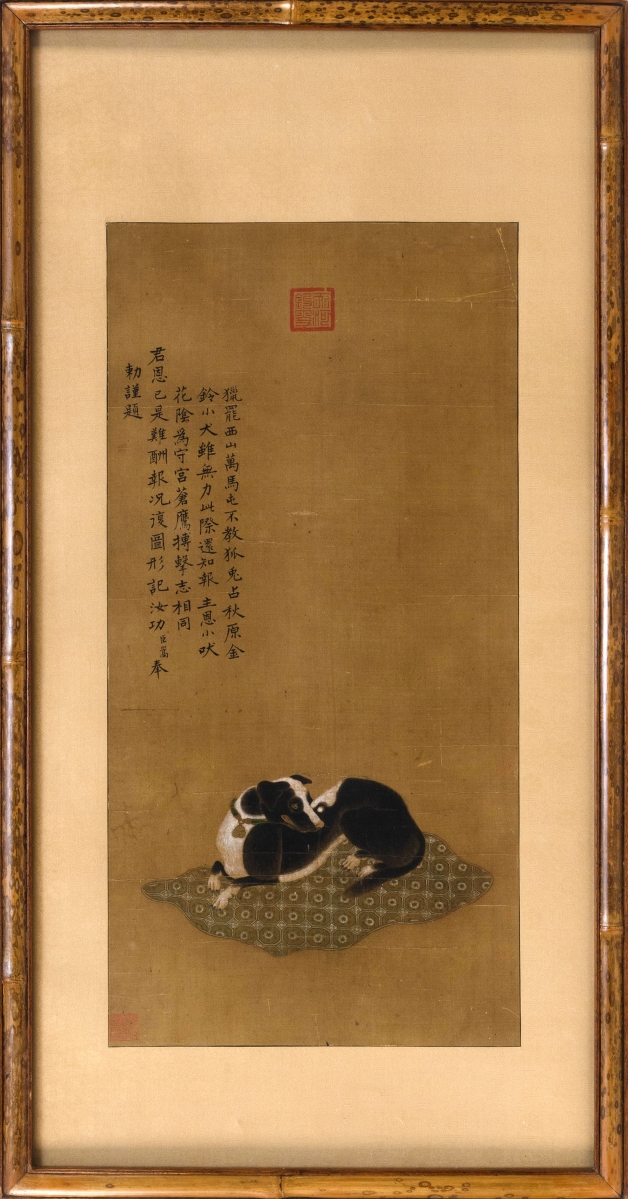 獵罷西山萬馬屯不教狐兎占秋原金
鈴小犬雖無力此際還知報 主恩小吠
花陰為守宮蒼鷹摶擊志相同
君恩已是難酬報况復圖形記汝功 臣嵩奉
勅謹題